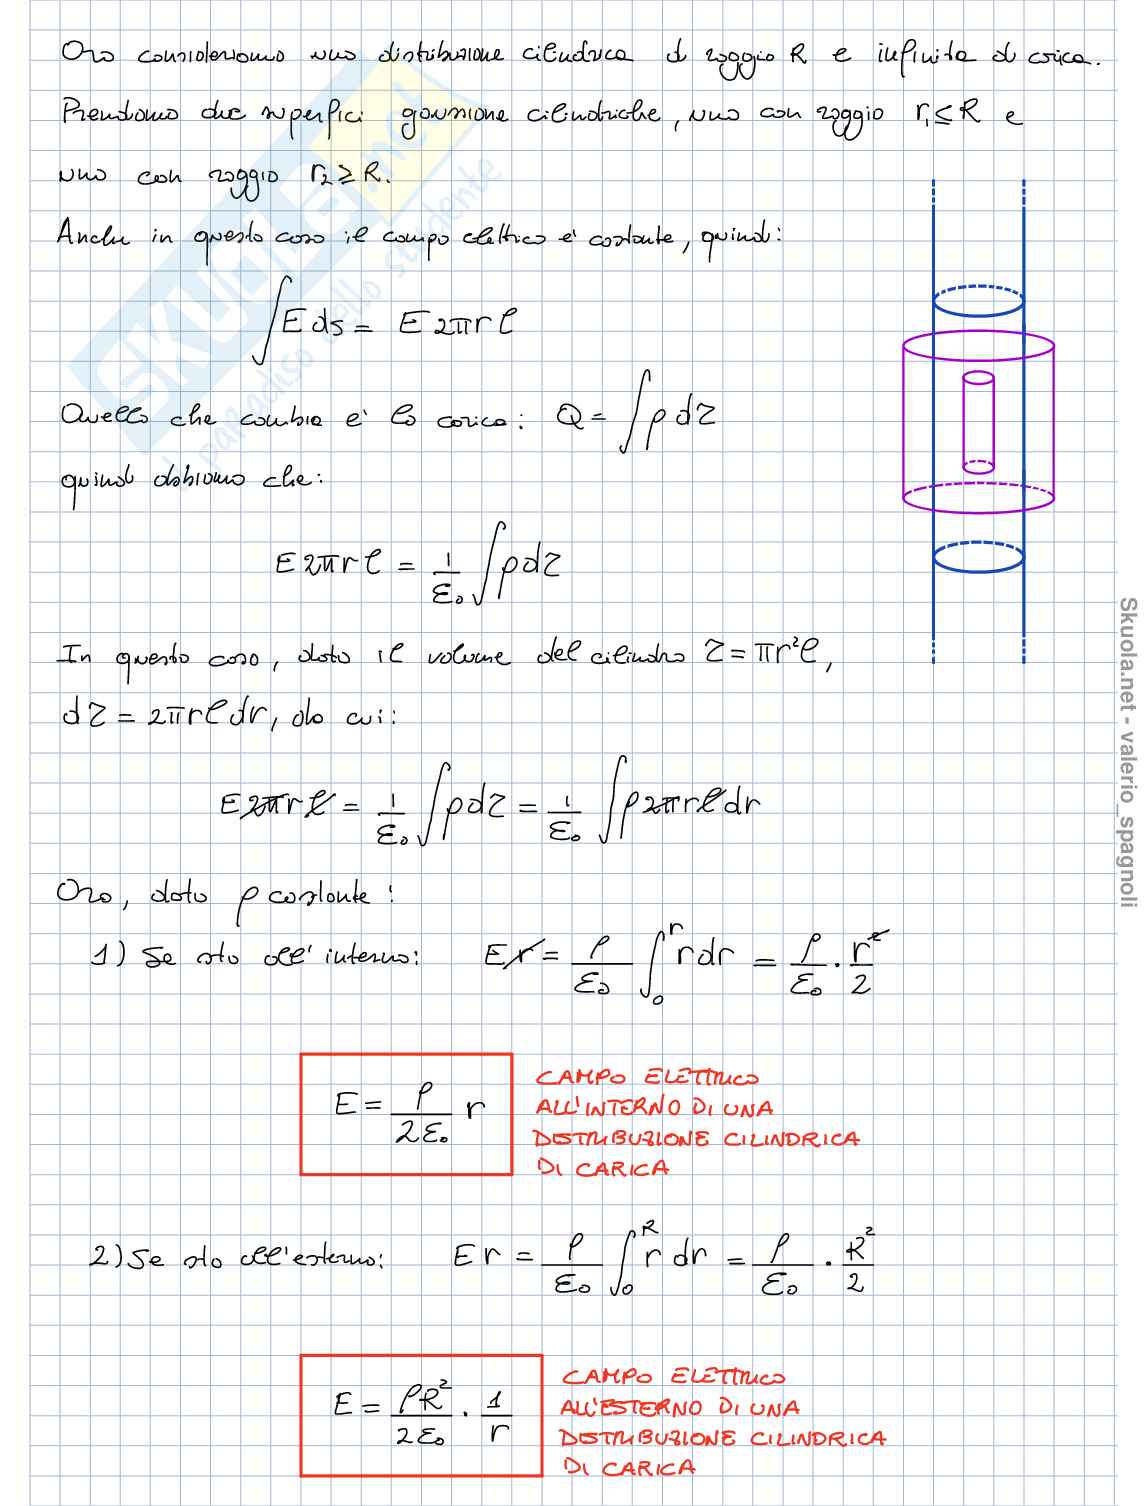 Ora consideriamo una distribuzione cilindrica di raggio R e infinita di carica.
Prendiamo due superfici gaussiane cilindriche, una con raggio r₁ ≤ R e
una con raggio r₂ ≥ R.
Anche in questo caso il campo elettrico e' costante, quindi:
∫ E ds = E 2πr l
Quello che cambia e' la carica: Q = ∫ ρ dτ
quindi abbiamo che:
E 2πr l = 1/ε₀ ∫ ρ dτ
In questo caso, dato il volume del cilindro τ = πr² l,
dτ = 2πr l dr, da cui:
E 2πr l = 1/ε₀ ∫ ρ dτ = 1/ε₀ ∫ ρ 2πr l dr
Ora, dato ρ costante:
1) Se sto all'interno: E r = ρ/ε₀ ∫₀^r r dr = ρ/ε₀ · r²/2
E = ρ/2ε₀ r
CAMPO ELETTRICO
ALL'INTERNO DI UNA
DISTRIBUZIONE CILINDRICA
DI CARICA
2) Se sto all'esterno: E r = ρ/ε₀ ∫₀^R r dr = ρ/ε₀ · R²/2
E = ρR²/2ε₀ · 1/r
CAMPO ELETTRICO
ALL'ESTERNO DI UNA
DISTRIBUZIONE CILINDRICA
DI CARICA
SKUOLA.net
il paradiso dello studente
Skuola.net - valerio_spagnoli